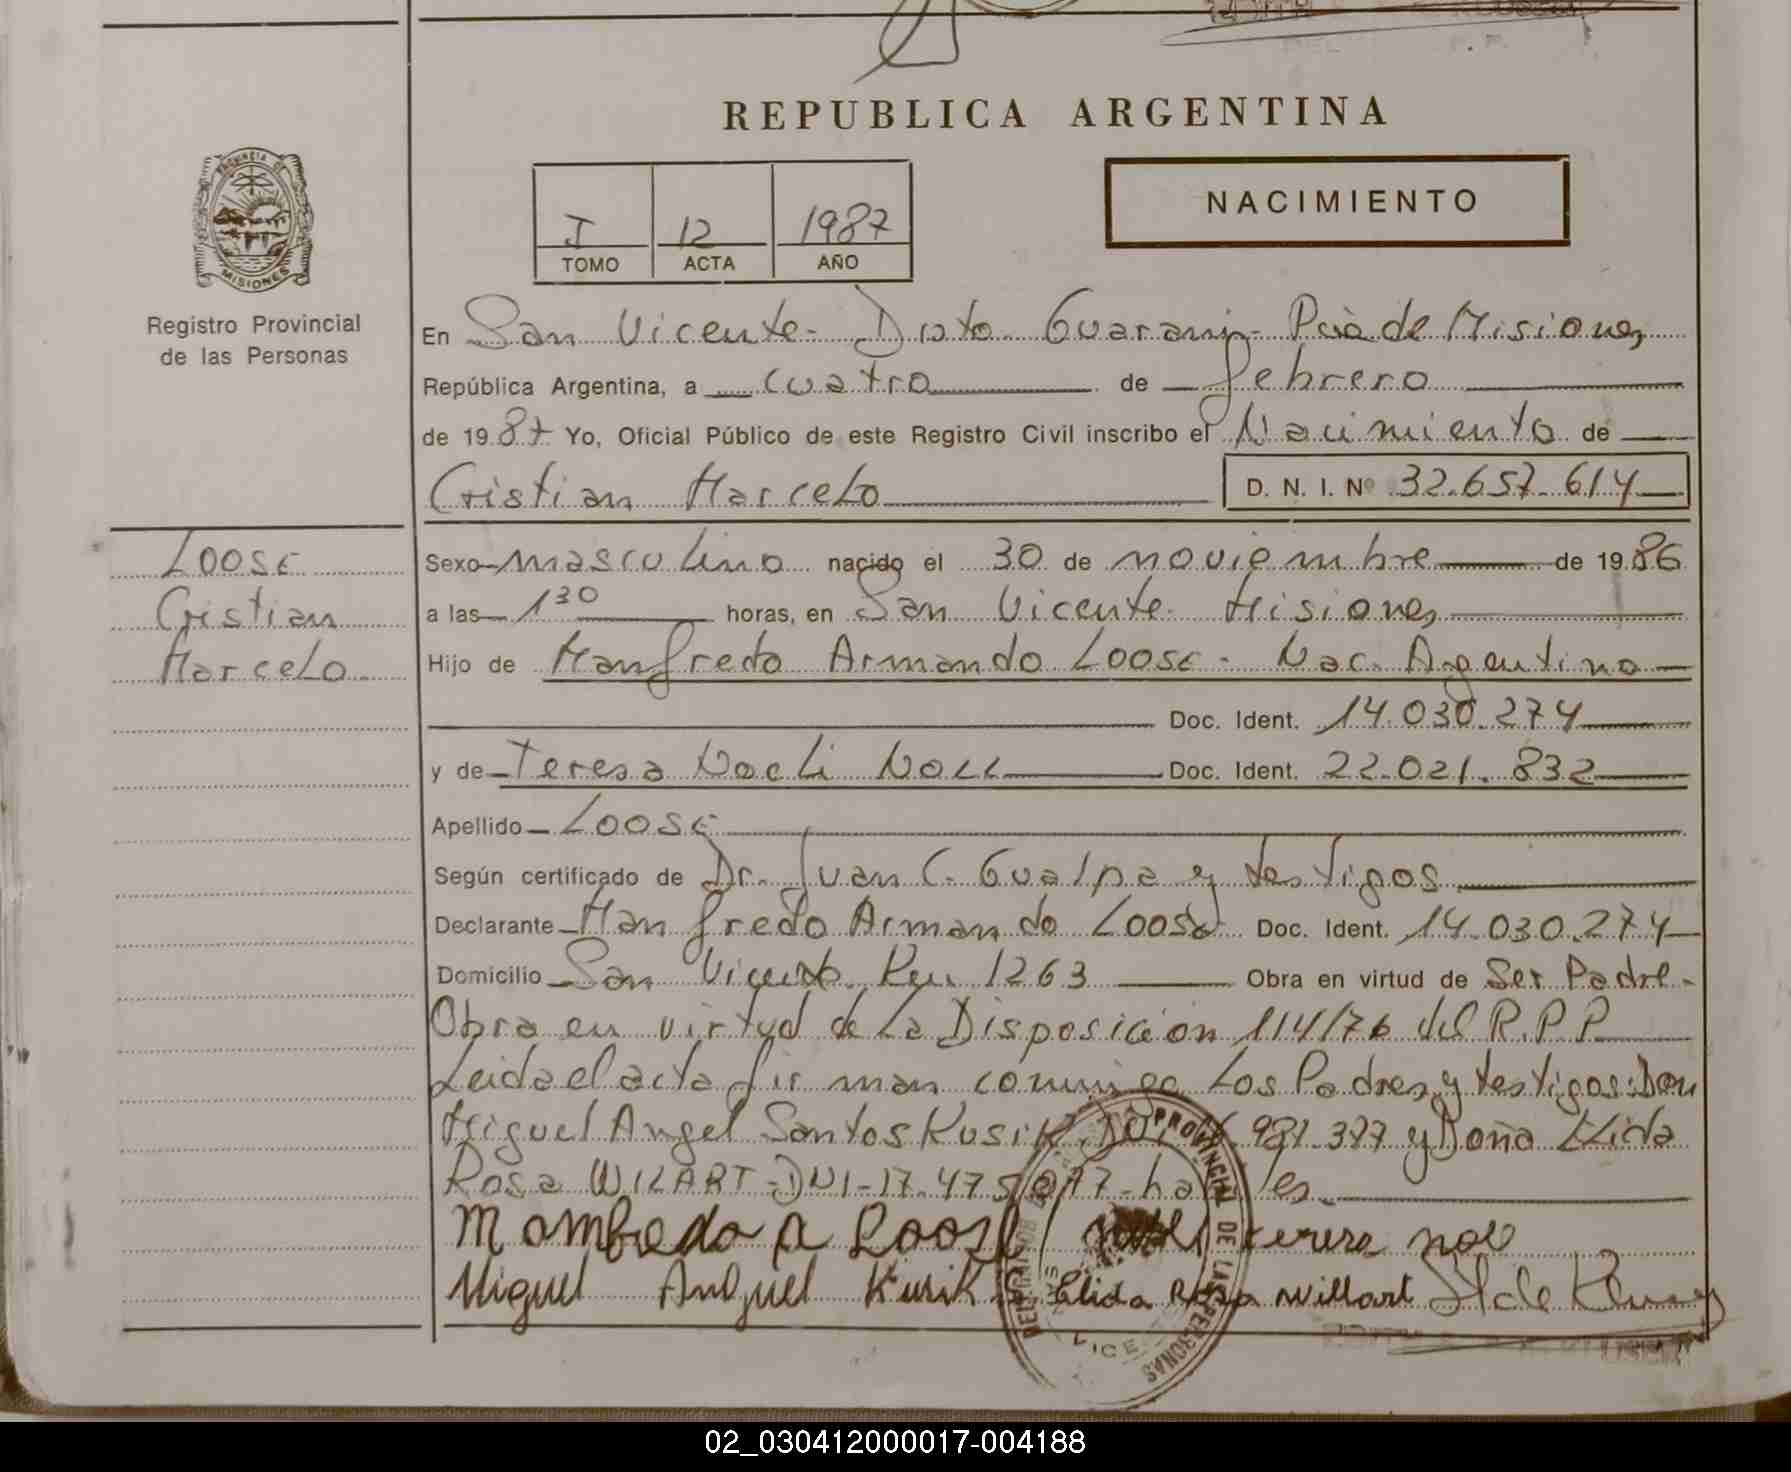 REPUBLICA ARGENTINA
I 12 1987
TOMO ACTA AÑO
NACIMIENTO
PROVINCIA DE
MISIONES
Registro Provincial
de las Personas
En San Vicente - Dpto Guarani - Pcia de Misiones
República Argentina, a cuatro de febrero
de 1987 Yo, Oficial Público de este Registro Civil inscribo el Nacimiento de
Cristian Marcelo D. N. I. Nº 32.657.614
Loose
Cristian
Marcelo
Sexo masculino nacido el 30 de noviembre de 1986
a las 1 30 horas, en San Vicente Misiones
Hijo de Manfredo Armando Loose - Nac. Argentino
Doc. Ident. 14.030.274
y de Teresa Noeli Noll Doc. Ident. 22.021.832
Apellido Loose
Según certificado de Dr. Juan C. Gualpa y testigos
Declarante Manfredo Armando Loose Doc. Ident. 14.030.274
Domicilio San Vicente Km 1263 Obra en virtud de Ser Padre -
Obra en virtud de la Disposición 114/76 del R.P.P
Leida el acta firman conmigo los Padres y testigos: Don
Miguel Angel Santos Kusik, 981.377 y Doña Elida
Rosa WILART - DNI - 17.475 - es
Mamfredo A Loose noeli teresa noll
Miguel Anguel Kusik Elida Rosa Willart
PROVINCIAL DE LAS PERSONAS
02_030412000017-004188